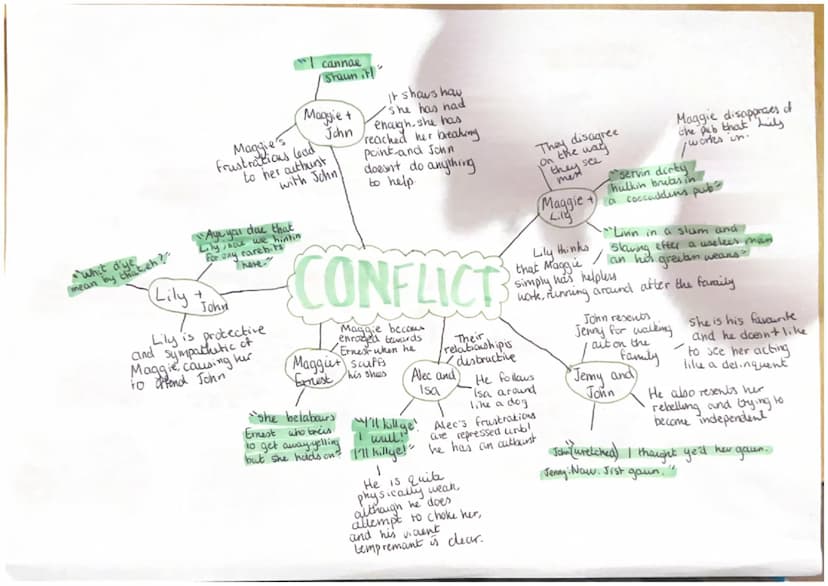 "I cannae
staun it!"
Maggie +
John
Maggie's
frustrations lead
to her outburst
with John
It shows how
she has had
enough, she has
reached her breaking
point and John
doesn't do anything
to help.
They disagree
on the way
they see
men
Maggie +
Lily
Maggie disapproves of
the pub that Lily
works in.
"servin dirty
hulkin brutes in
a coocaddens pub"
"Livin in a slum and
slaving efter a useless man
an his greetin weans"
Lily thinks
that Maggie
simply has helpless
work, running around after the family
CONFLICT
"Aye you dae that
Lily
for ony rarebits
here."
"Whit d'ye
mean by that, eh?"
Lily +
John
Lily is protective
and sympathetic of
Maggie, causing her
to offend John
Maggie becomes
enraged towards
Ernest when he
scuffs
his shoes
Maggie +
Ernest
"She belabours
Ernest who tries
to get away, yelling
but she holds on"
Their
relationship is
distructive
Alec and
Isa
He follows
Isa around
like a dog
"I'll kill ye!
I wull!
I'll kill ye!"
Alec's frustrations
are repressed until
he has an outburst
He is quite
physically weak,
although he does
attempt to choke her,
and his violent
tempremant is clear.
John resents
Jenny for walking
out on the
family
She is his favourite
and he doesn't like
to see her acting
like a delinquent
Jenny and
John
He also resents her
rebelling and trying to
become independent
John "(wretched) I thought ye'd hev gaun.
Jenny: Naw. Jist gaun."